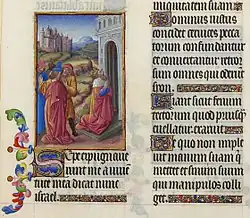 Sepe expugnaue
runt me a iuuen
tute mea dicat nunc
israel.
iniquitatem suam
Dominus iustus
concidet ceruices pecca
torum confundantur
et conuertantur retror
sum omnes qui oderunt
syon.
Fiant sicut fenum
tectorum quod priusq
euellatur exaruit.
De quo non imple
uit manum suam qui
metet et sinum suum
qui manipulos colli
get.